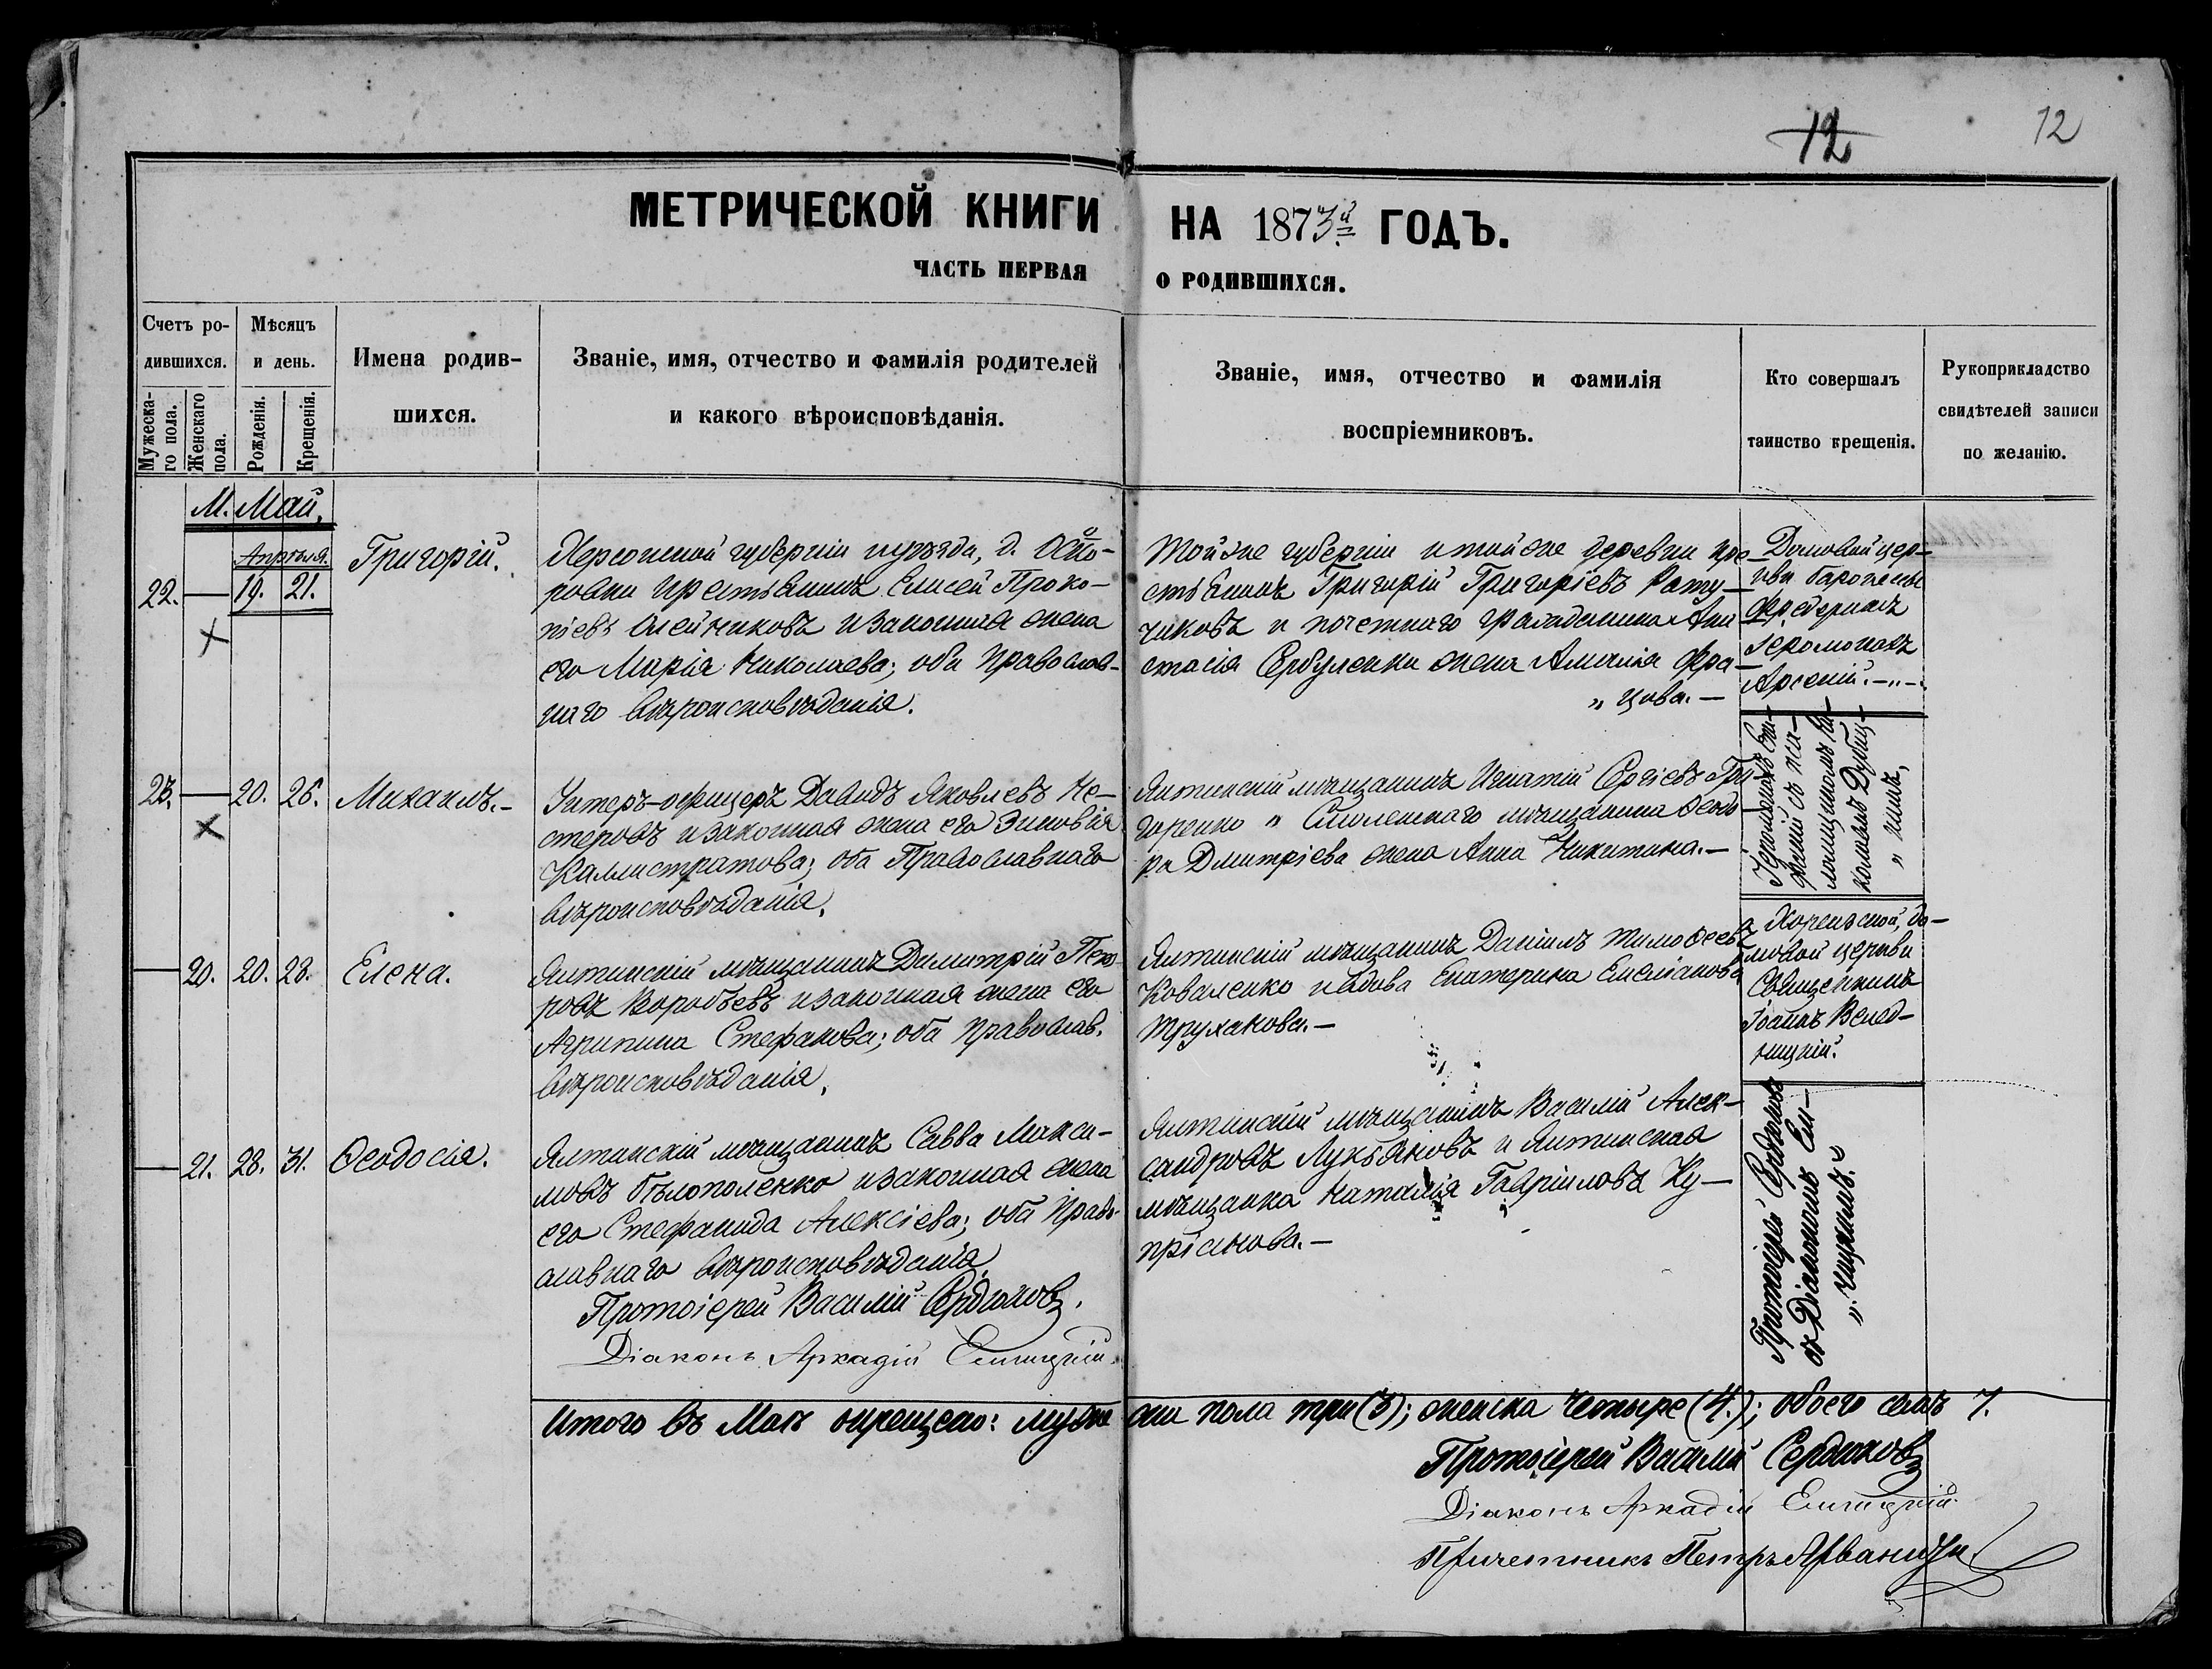 12
12
МЕТРИЧЕСКОЙ КНИГИ НА 1873й ГОДЪ.
ЧАСТЬ ПЕРВАЯ О РОДИВШИХСЯ.
Счетъ ро-
дившихся.
Мужеска-
го пола.
Женскаго
пола.
Мѣсяцъ
и день.
Рожденія.
Крещенія.
Имена родив-
шихся.
Званіе, имя, отчество и фамилія родителей
и какого вѣроисповѣданія.
Званіе, имя, отчество и фамилія
воспріемниковъ.
Кто совершалъ
таинство крещенія.
Рукоприкладство
свидѣтелей записи
по желанію.
М. Май.
Апрѣля.
22. — 19. 21.
Григорій.
Херсонской губерніи и уѣзда, д.
крестьянинъ Елисей Проко-
піевъ Олейниковъ и законная жена
его Марія Николаева; оба Православ-
наго вѣроисповѣданія.
Тойже губерніи и тойже деревни кре-
стьянинъ Григорій Григоріевъ Рату-
чиковъ и почетнаго гражданина Ана-
стасія Сербуленки жена Амалія Фра-
" цова. —
Домовой цер-
кви баронессы
Іеромонахъ
Арсеній. —"—
23. — 20. 26.
Михаилъ. —
Унтеръ-офицеръ Давидъ Яковлевъ Не-
стеровъ и законная жена его Зиновія
Каллистратова; оба Православнаго
вѣроисповѣданія.
Ялтинскій мѣщанинъ Игнатій Сергіевъ Гри-
горенко " Смоленскаго мѣщанина Ѳеодо
ра Дмитріева жена Анна Никитина. —
Іеромонахъ
съ пса-
ломщикомъ Ни-
колаемъ Дубиц-
" кимъ,
— 20. 20. 28.
Елена.
Ялтинскій мѣщанинъ Димитрій Пет-
ровъ Воробьевъ и законная жена его
Агрипина Стефанова; оба Православ.
вѣроисповѣданія.
Ялтинскій мѣщанинъ Даніилъ Тимоѳеевъ
Коваленко и вдова Екатерина Емеліанова
Труханова. —
Хореизской, до-
мовой церкви
Священникъ
Іоаннъ Велед-
ницкій.
— 21. 28. 31.
Ѳеодосія.
Ялтинскій мѣщанинъ Савва Макси-
мовъ Бѣлополенко и законная жена
его Стефанида Алексіева; оба Право-
славнаго вѣроисповѣданія.
Ялтинскій мѣщанинъ Василій Алек-
сандровъ Лукьяновъ и Ялтинская
мѣщанка Наталія Гавріиловъ Ку-
пріянова. —
Протоіерей Сердюковъ
съ Діакономъ Ели-
" чицкимъ. "
Протоіерей Василій Сердюковъ.
Діаконъ Аркадій
Итого въ Маѣ окрещено: мужеска пола три (3); женска четыре (4.); обоего семь 7.
Протоіерей Василій Сердюковъ
Діаконъ Аркадій
Причетникъ Петръ Арваниди